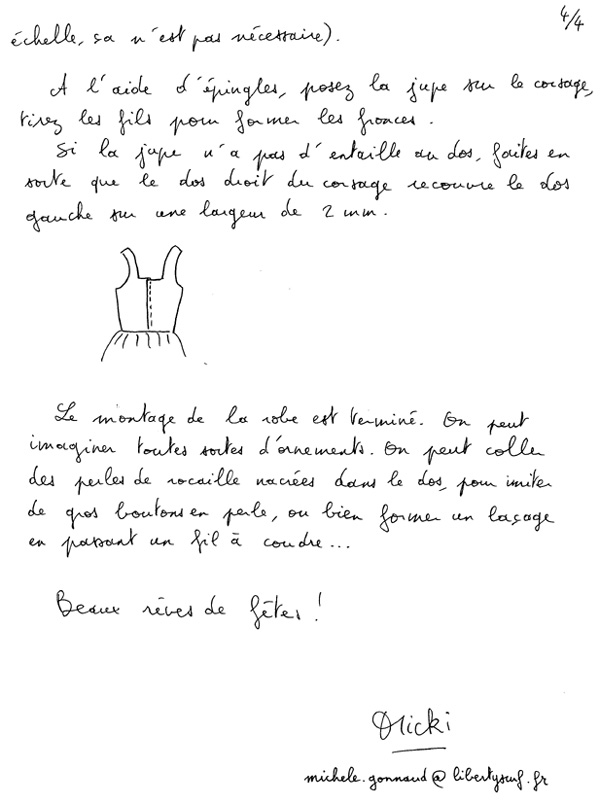 4/4
échelle, sa n'est pas nécessaire).
A l'aide d'épingles, posez la jupe sur le corsage,
tirez les fils pour former les fronces.
Si la jupe n'a pas d'entaille au dos, faites en
sorte que le dos droit du corsage recouvre le dos
gauche sur une largeur de 2 mm.
Le montage de la robe est terminé. On peut
imaginer toutes sortes d'ornements. On peut coller
des perles de rocaille nacrées dans le dos, pour imiter
de gros boutons en perle, ou bien former un laçage
en passant un fil à coudre...
Beaux rêves de fêtes !
Micki
michele.gonnaud@libertysurf.fr